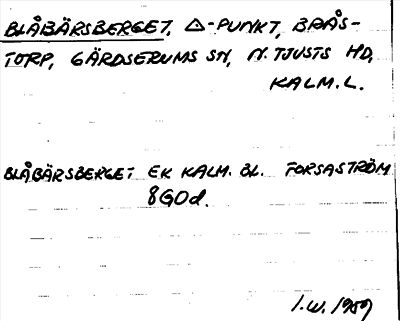 BLÅBÄRSBERGET, △-PUNKT, BRÅS-
TORP, GÄRDSERUMS SN, N. TJUSTS HD,
KALM. L.
BLÅBÄRSBERGET EK KALM. BL. FORSASTRÖM
8G0d.
I.W. 1959